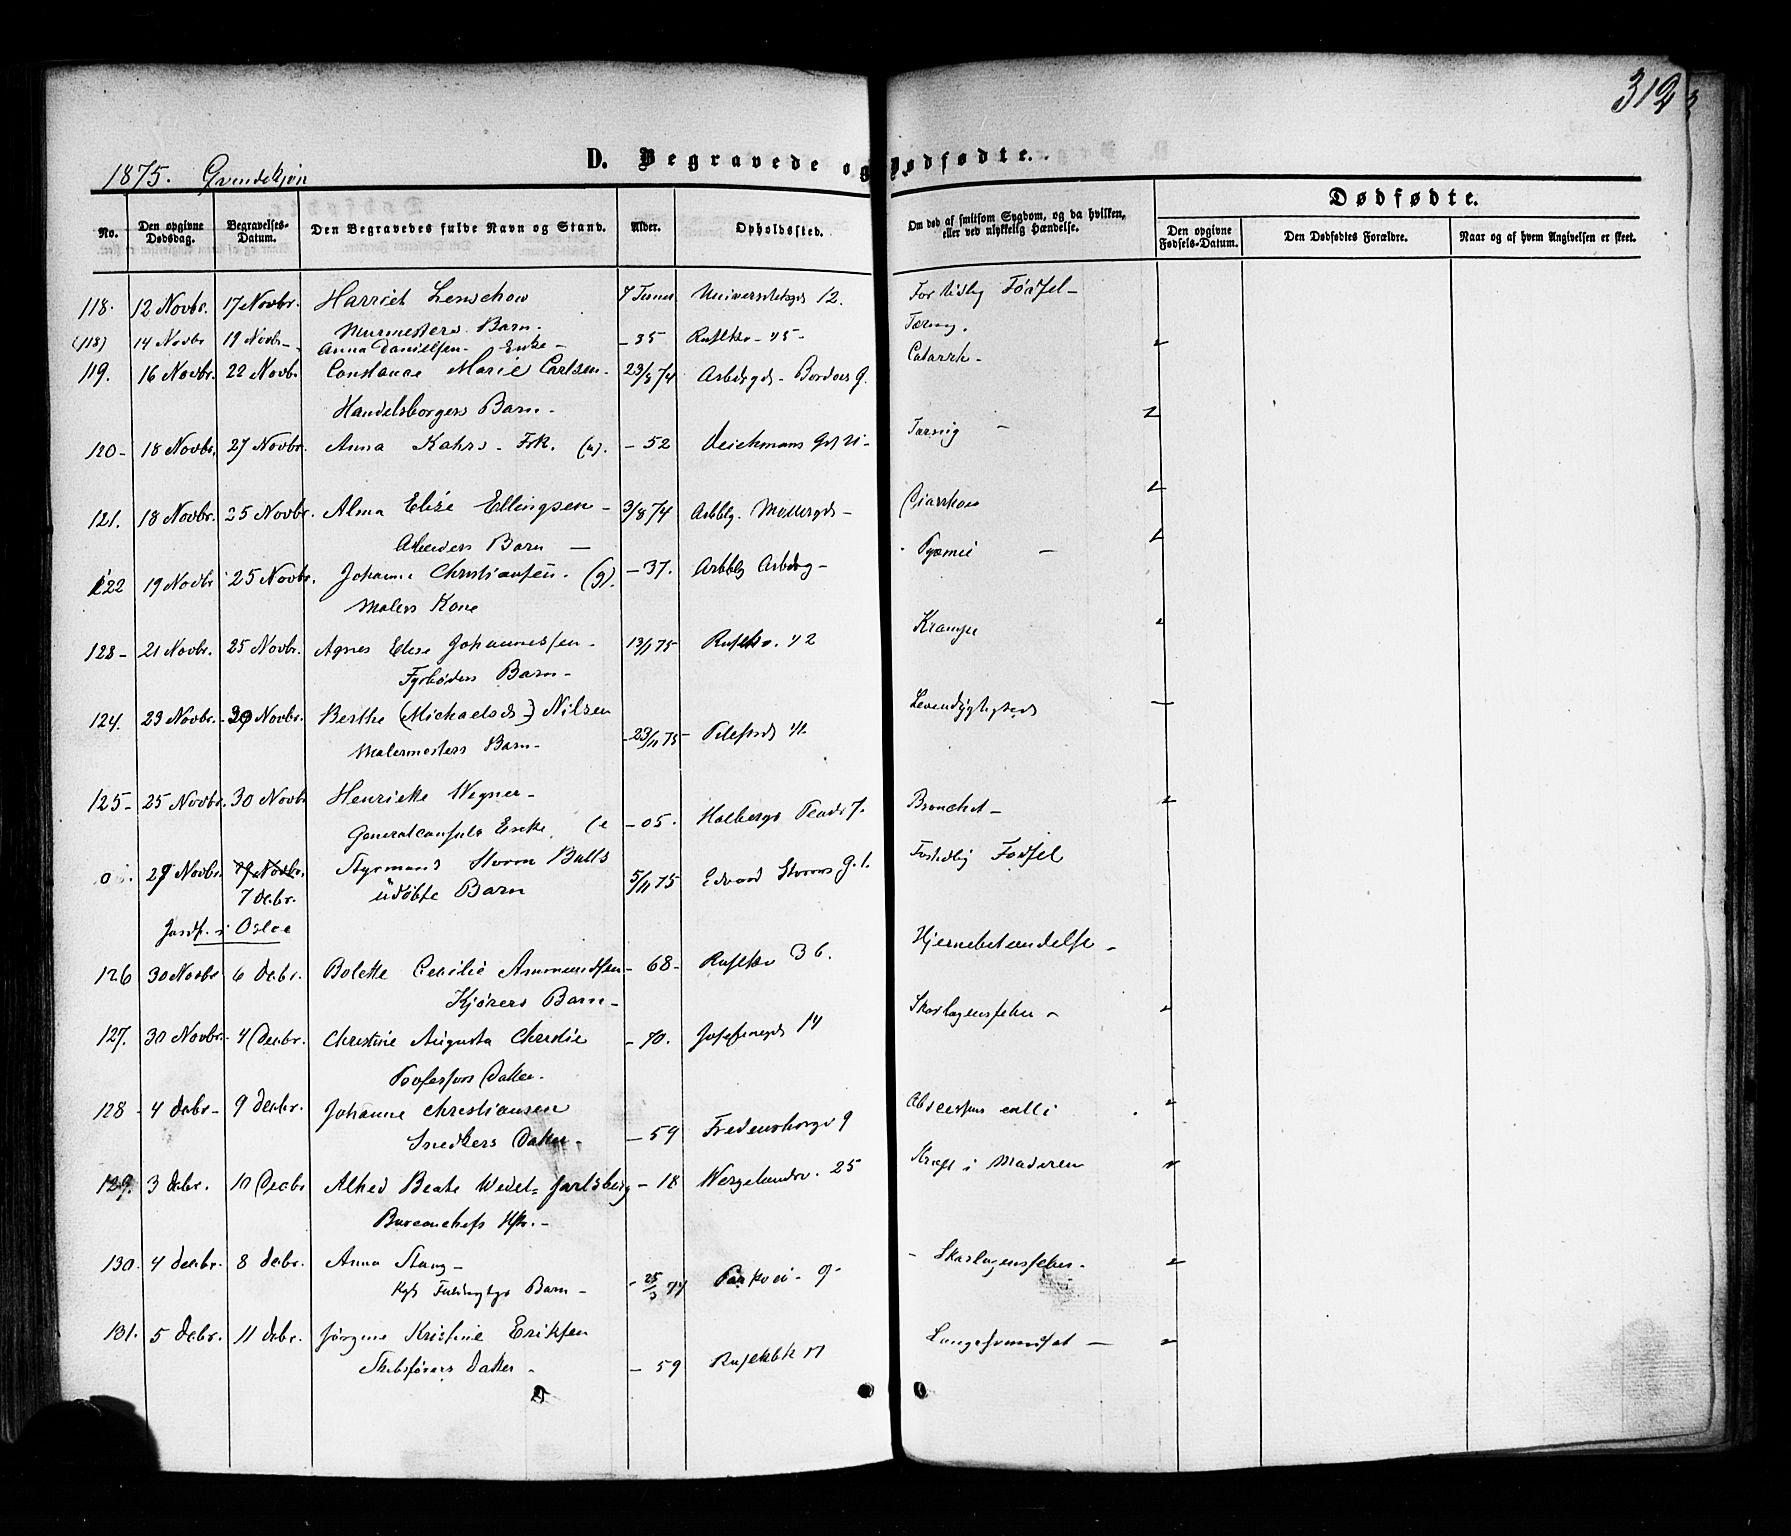 312
1875. Qvindekjøn
D. Begravede og Dødfødte.
Dødfødte.
No. Den opgivne Dødsdag. Begravelses-Datum. Den Begravedes fulde Navn og Stand. Alder. Opholdssted. Om død af smitsom Sygdom, og da hvilken, eller ved ulykkelig Hændelse. Den opgivne Fødsels-Datum. Den Dødfødtes Forældre. Naar og af hvem Angivelsen er skeet.
118. 12 Novbr. 17 Novbr. Harriet Lenschow 7 Timer Universitetsgd 12. For tidlig Fødsel -
Murmesters Barn -
(118) 14 Novbr 19 Novbr - Anna Danielsen - Enke - - 35 Rusløkv - 45 - Tæring.
119. 16 Novbr. 22 Novbr Constance Marie Carlsen - 23/8 74 Arbdsgd - Bordoes G. Catarrh -
Handelsborgers Barn -
120 - 18 Novbr. 27 Novbr. Anna Kahrs - Frk. (u). - 52 Deichmans Gd Tæring -
121. 18 Novbr. 25 Novbr. Alma Elise Ellingsen - 3/8 74 Arbblg. Møllergd - Diarrhoe
Arbeiders Barn -
122 19 Novbr 25 Novbr. Johanne Christiansen. (g). - 37. Arbblg Arbdsg - Pyæmie -
Malers Kone
123 - 21 Novbr. 25 Novbr. Agnes Elise Johannessen - 13/1 75 Rusløkv. 42 Krampe
Fyrbøders Barn -
124. 23 Novbr. - 30 Novbr. Berthe (Michaelsd -) Nilsen - 23/11 75 - Pilestrd 41. Levendygtighed
Malermesters Barn -
125 - 25 Novbr. 30 Novbr Henriette Wegner - - 05. Holbergs Pladv 7. Bronchit -
Generalconsuls Enke. (e
0 27 Novbr. 29 Novbr. Styrmand Storm Bulls 5/11 75 Edvard Storms G. 1. Fortidlig Fødsel
7 Decbr. udøbte Barn
Jordf. i Osloe
126 30 Novbr 6 Decbr. Bolette Cecilie Ammundsen - 68 - Rusløkv 36. Hjernebetændelse -
Kjørers Barn -
127. 30 Novbr. 4 Decbr. Christine Augusta Christie - 70. Josefinegd 14 Skarlagensfeber -
Professors Datter -
128 - 4 Decbr - 9 Decbr. Johanne Christiansen - 59 Fredensborgv 9 Abscessus colli
Snedkers Datter -
129. 3 Decbr. 10 Decbr Alhed Beate Wedel-Jarlsberg - 18 Wergelandsv. 25 Kræft i Maderen
Bureauchefs Hfr. -
130. 4 Decbr. 8 Decbr. Anna Stang - - 25/3 74 Parkvei - 9 - - Skarlagensfeber -
Kgs Fuldmægtigs Barn -
131. 5 Decbr. 11 Decbr. Jørgine Kristine Eriksen - 59 Rusløkbk 17 Lungesvindsot -
Skibsførers Datter -